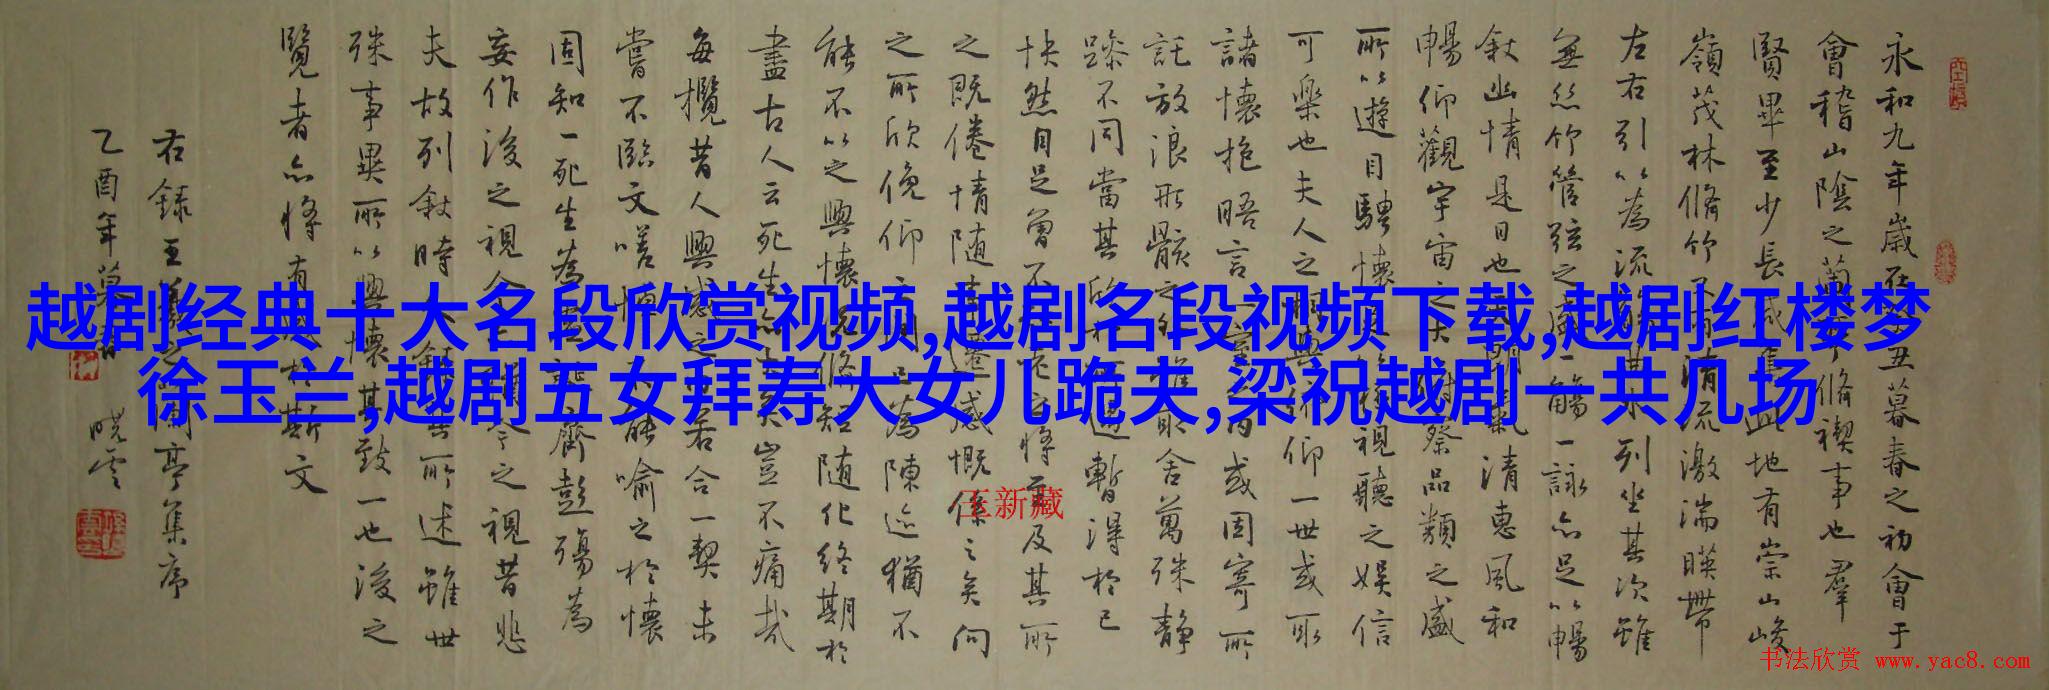 越剧经典十大名段欣赏视频,越剧名段视频下载,越剧红楼梦
徐玉兰,越剧五女拜寿大女儿跪夫,梁祝越剧一共几场
永和九年歲在癸丑暮春之初會于
會稽山陰之蘭亭脩禊事也羣
賢畢至少長咸集此地有崇山峻
嶺茂林脩竹又有清流激湍暎帶
左右引以為流觴曲水列坐其次雖
無絲竹管弦之盛一觴一詠亦足以暢
敘幽情是日也天朗氣清惠風和
暢仰觀宇宙之大俯察品類之盛
所以遊目騁懷足以極視聽之娛信
可樂也夫人之相與俯仰一世或取
諸懷抱晤言一室之內或因寄所
託放浪形骸之外雖取舍萬殊靜
躁不同當其欣於所遇暫得於己
快然自足曾不知老之將至及其所
之既倦情随事遷感慨係之矣向
之所欣俛仰之間已為陳迹猶不
能不以之興懷況脩短随化終期於
盡古人云死生亦大矣豈不痛哉
每攬昔人興感之由若合一契未
嘗不臨文嗟悼不能喻之於懷
固知一死生為虛誕齊彭殤為
妄作後之視今亦猶今之視昔悲
夫故列敘時人錄其所述雖世
殊事異所以興懷其致一也後之
覽者亦將有感於斯文
右錄王羲之蘭亭集序
乙酉年暮春 曉雲
王新藏
书法欣赏 www.yac8.com